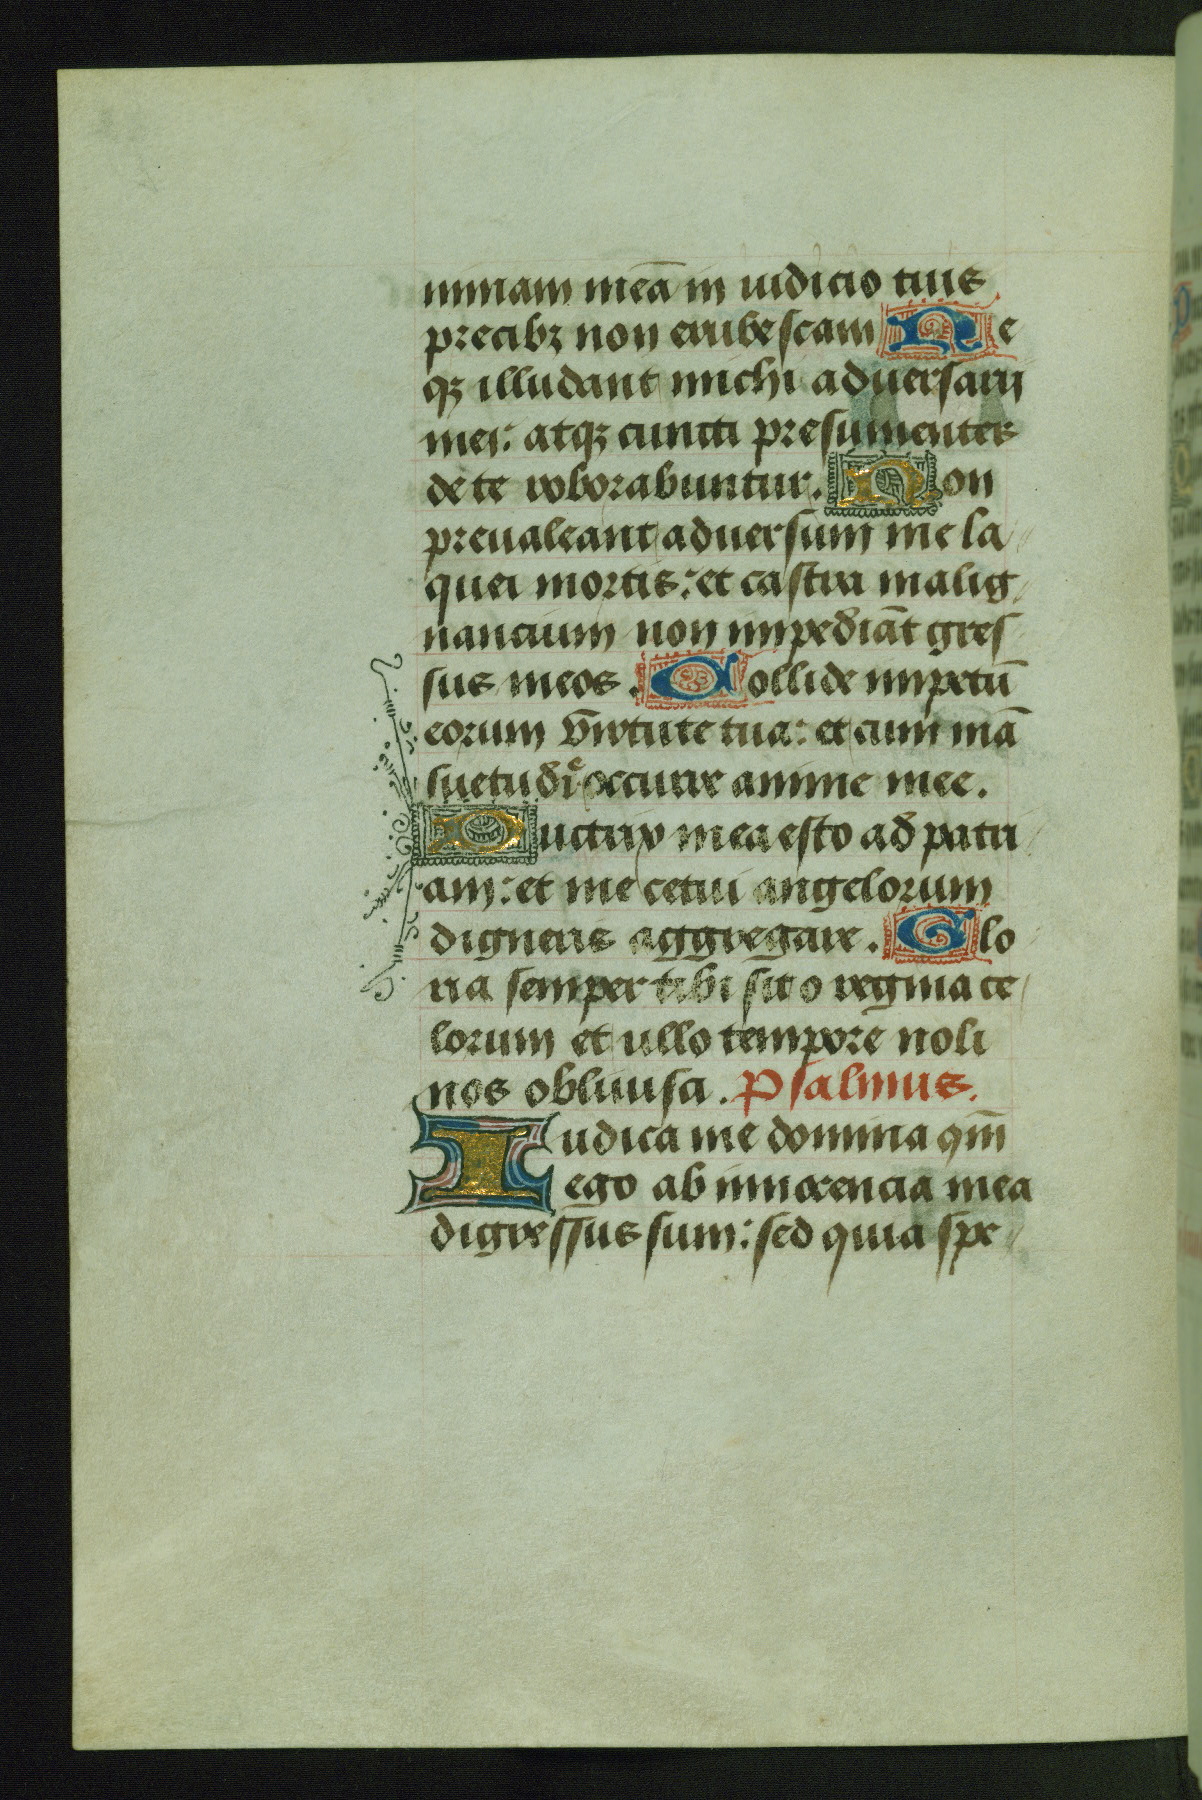 nimam meā in iudicio tuis
precibꝫ non erubescam Ne
qꝫ illudant michi aduersarii
mei: atqꝫ cuncti presumentes
de te roborabuntur. Non
preualeant aduersum me la
quei mortis: et castra malig
nancium non impediāt gres
sus meos. Collide impetū
eorum virtute tua: et cum mā
suetudīe occurre anime mee.
Ductrix mea esto ad patri
am: et me cetui angelorum
digneris aggregare. Glo
ria semper tibi sit o regina ce
lorum et ullo tempore noli
nos obliuisci. Psalmus.
Iudica me domina qm̄
ego ab innocencia mea
digressus sum: sed quia spe